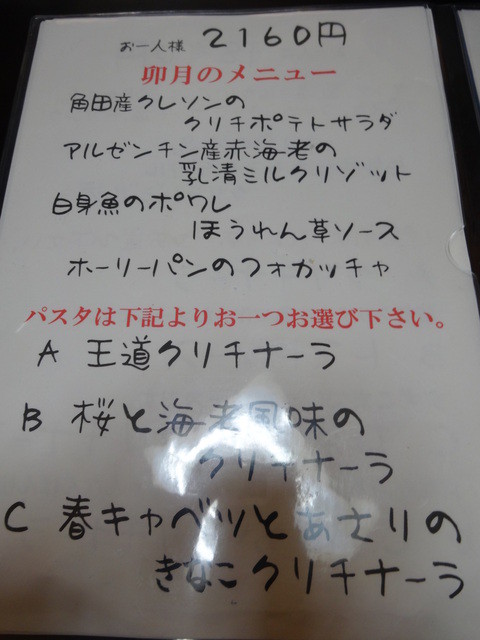 お一人様 2160円
卯月のメニュー
角田産クレソンの
クリチポテトサラダ
アルゼンチン産赤海老の
乳清ミルクリゾット
白身魚のポワレ
ほうれん草ソース
ホーリーパンのフォカッチャ
パスタは下記よりお一つお選び下さい。
A 王道クリチナーラ
B 桜と海老風味の
クリチナーラ
C 春キャベツとあさりの
きなこクリチナーラ